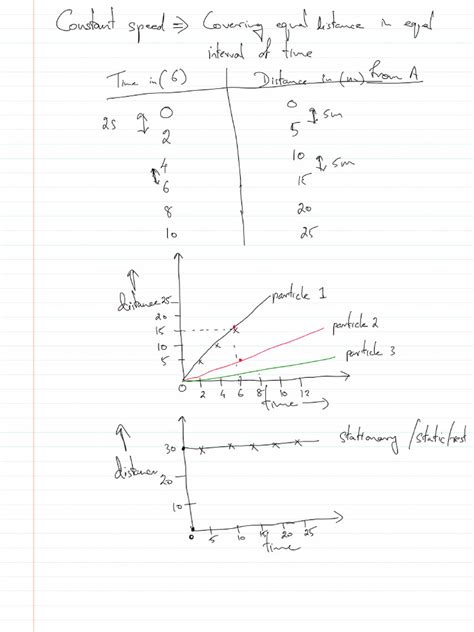 Constant speed ⇒ Covering equal distance in equal
interval of time
Time in (s)
Distance in (m) from A
0 0
2s 5m
2 5
4 10
5m
6 15
8 20
10 25
distance
25
20
15
10
5
0 2 4 6 8 10 12
time
particle 1
particle 2
particle 3
distance
30
20
10
0 5 10 15 20 25
time
stationary /static/rest